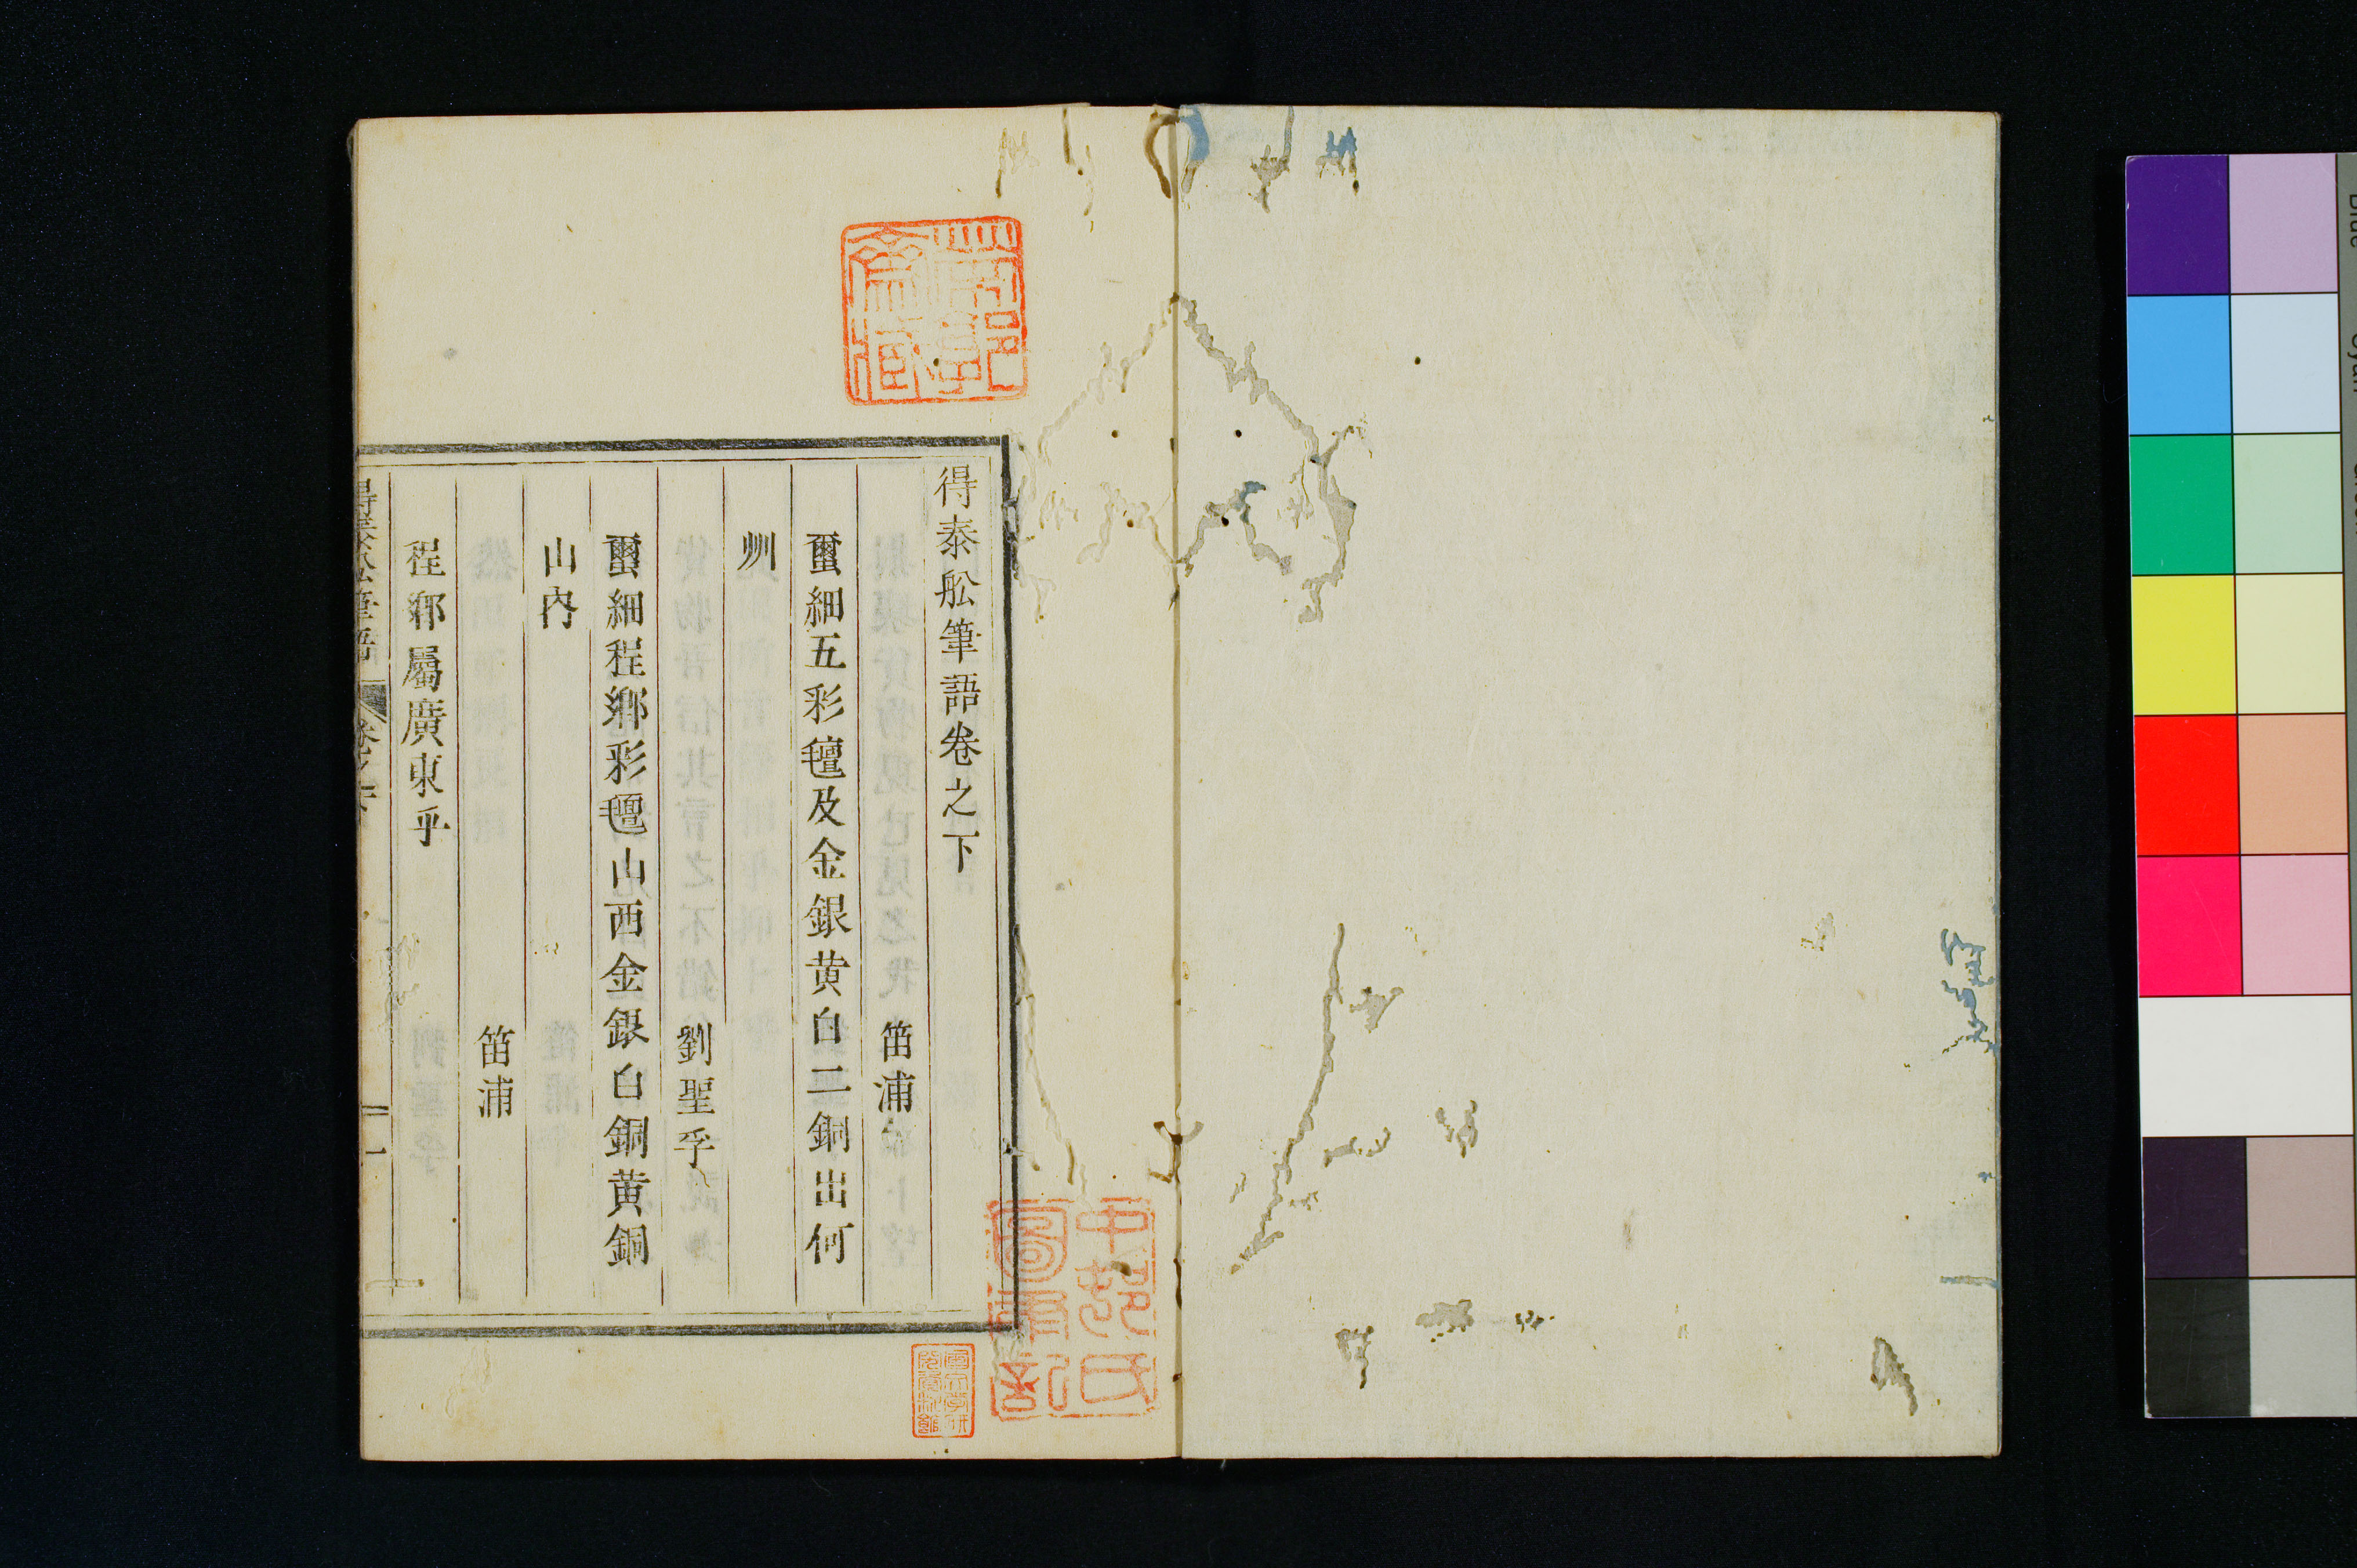 得泰舩筆語卷之下
笛浦
蠒細五彩氊及金銀黄白二銅出何
州
劉聖孚
蠒細程鄉彩氊山西金銀白銅黄銅
山內
笛浦
程鄉屬廣東乎
得泰舩筆語
卷之下
一